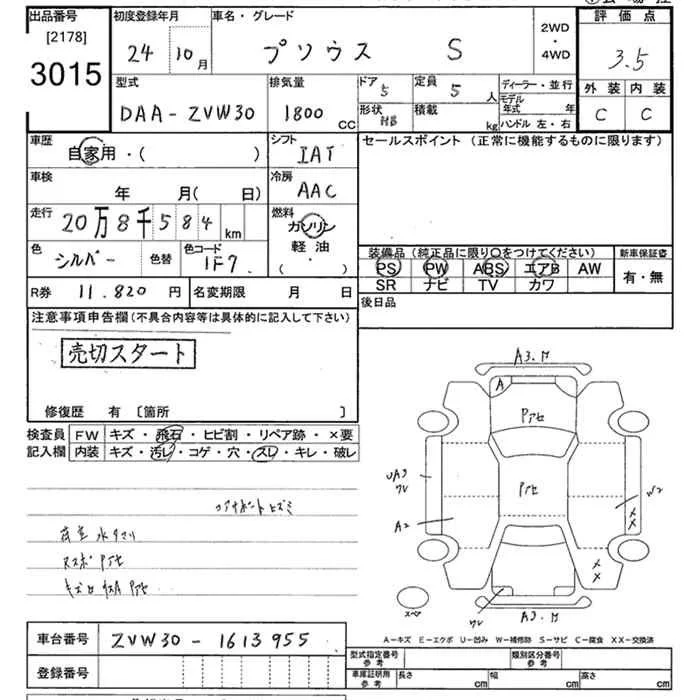 出品番号
[2178]
3015
初度登録年月
24 10 月
車名・グレード
プソウス S
2WD
・
4WD
評価点
3.5
外装 内装
C C
型式
DAA-ZVW30
排気量
1800 CC
ドア 5
定員 5 人
形状
積載 kg
ディーラー・並行
モデル年式 年
ハンドル 左・右
車歴
自家用・( )
シフト
IAT
セールスポイント (正常に機能するものに限ります)
車検
年 月( 日)
冷房
AAC
走行
20万8千584 km
燃料
ガソリン
軽油・
( )
色
シルバー
色替
色コード
1F7
装備品 (純正品に限り○をつけてください)
PS PW ABS エアB AW
SR ナビ TV カワ
新車保証書
有・無
R券 11.820 円
名変期限 月 日
後日品
注意事項申告欄(不具合内容等は具体的に記入して下さい)
売切スタート
修復歴 有 〔箇所 〕
検査員記入欄
FW キズ・飛石・ヒビ割・リペア跡・×要
内装 キズ・汚レ・コゲ・穴・スレ・キレ・破レ
コアサポートヒズミ
A3.
A
Pアセ
Pアセ
UA3
ワレ
A2
W2
XX
XX
ワレ
A3.
スペア
A-キズ E-エクボ U-凹み W-補修跡 S-サビ C-腐食 XX-交換済
車台番号 ZVW30-1613955
登録番号
型式指定番号
参考
類別区分番号
参考
車庫証明用
参考
長さ cm
幅 cm
高さ cm